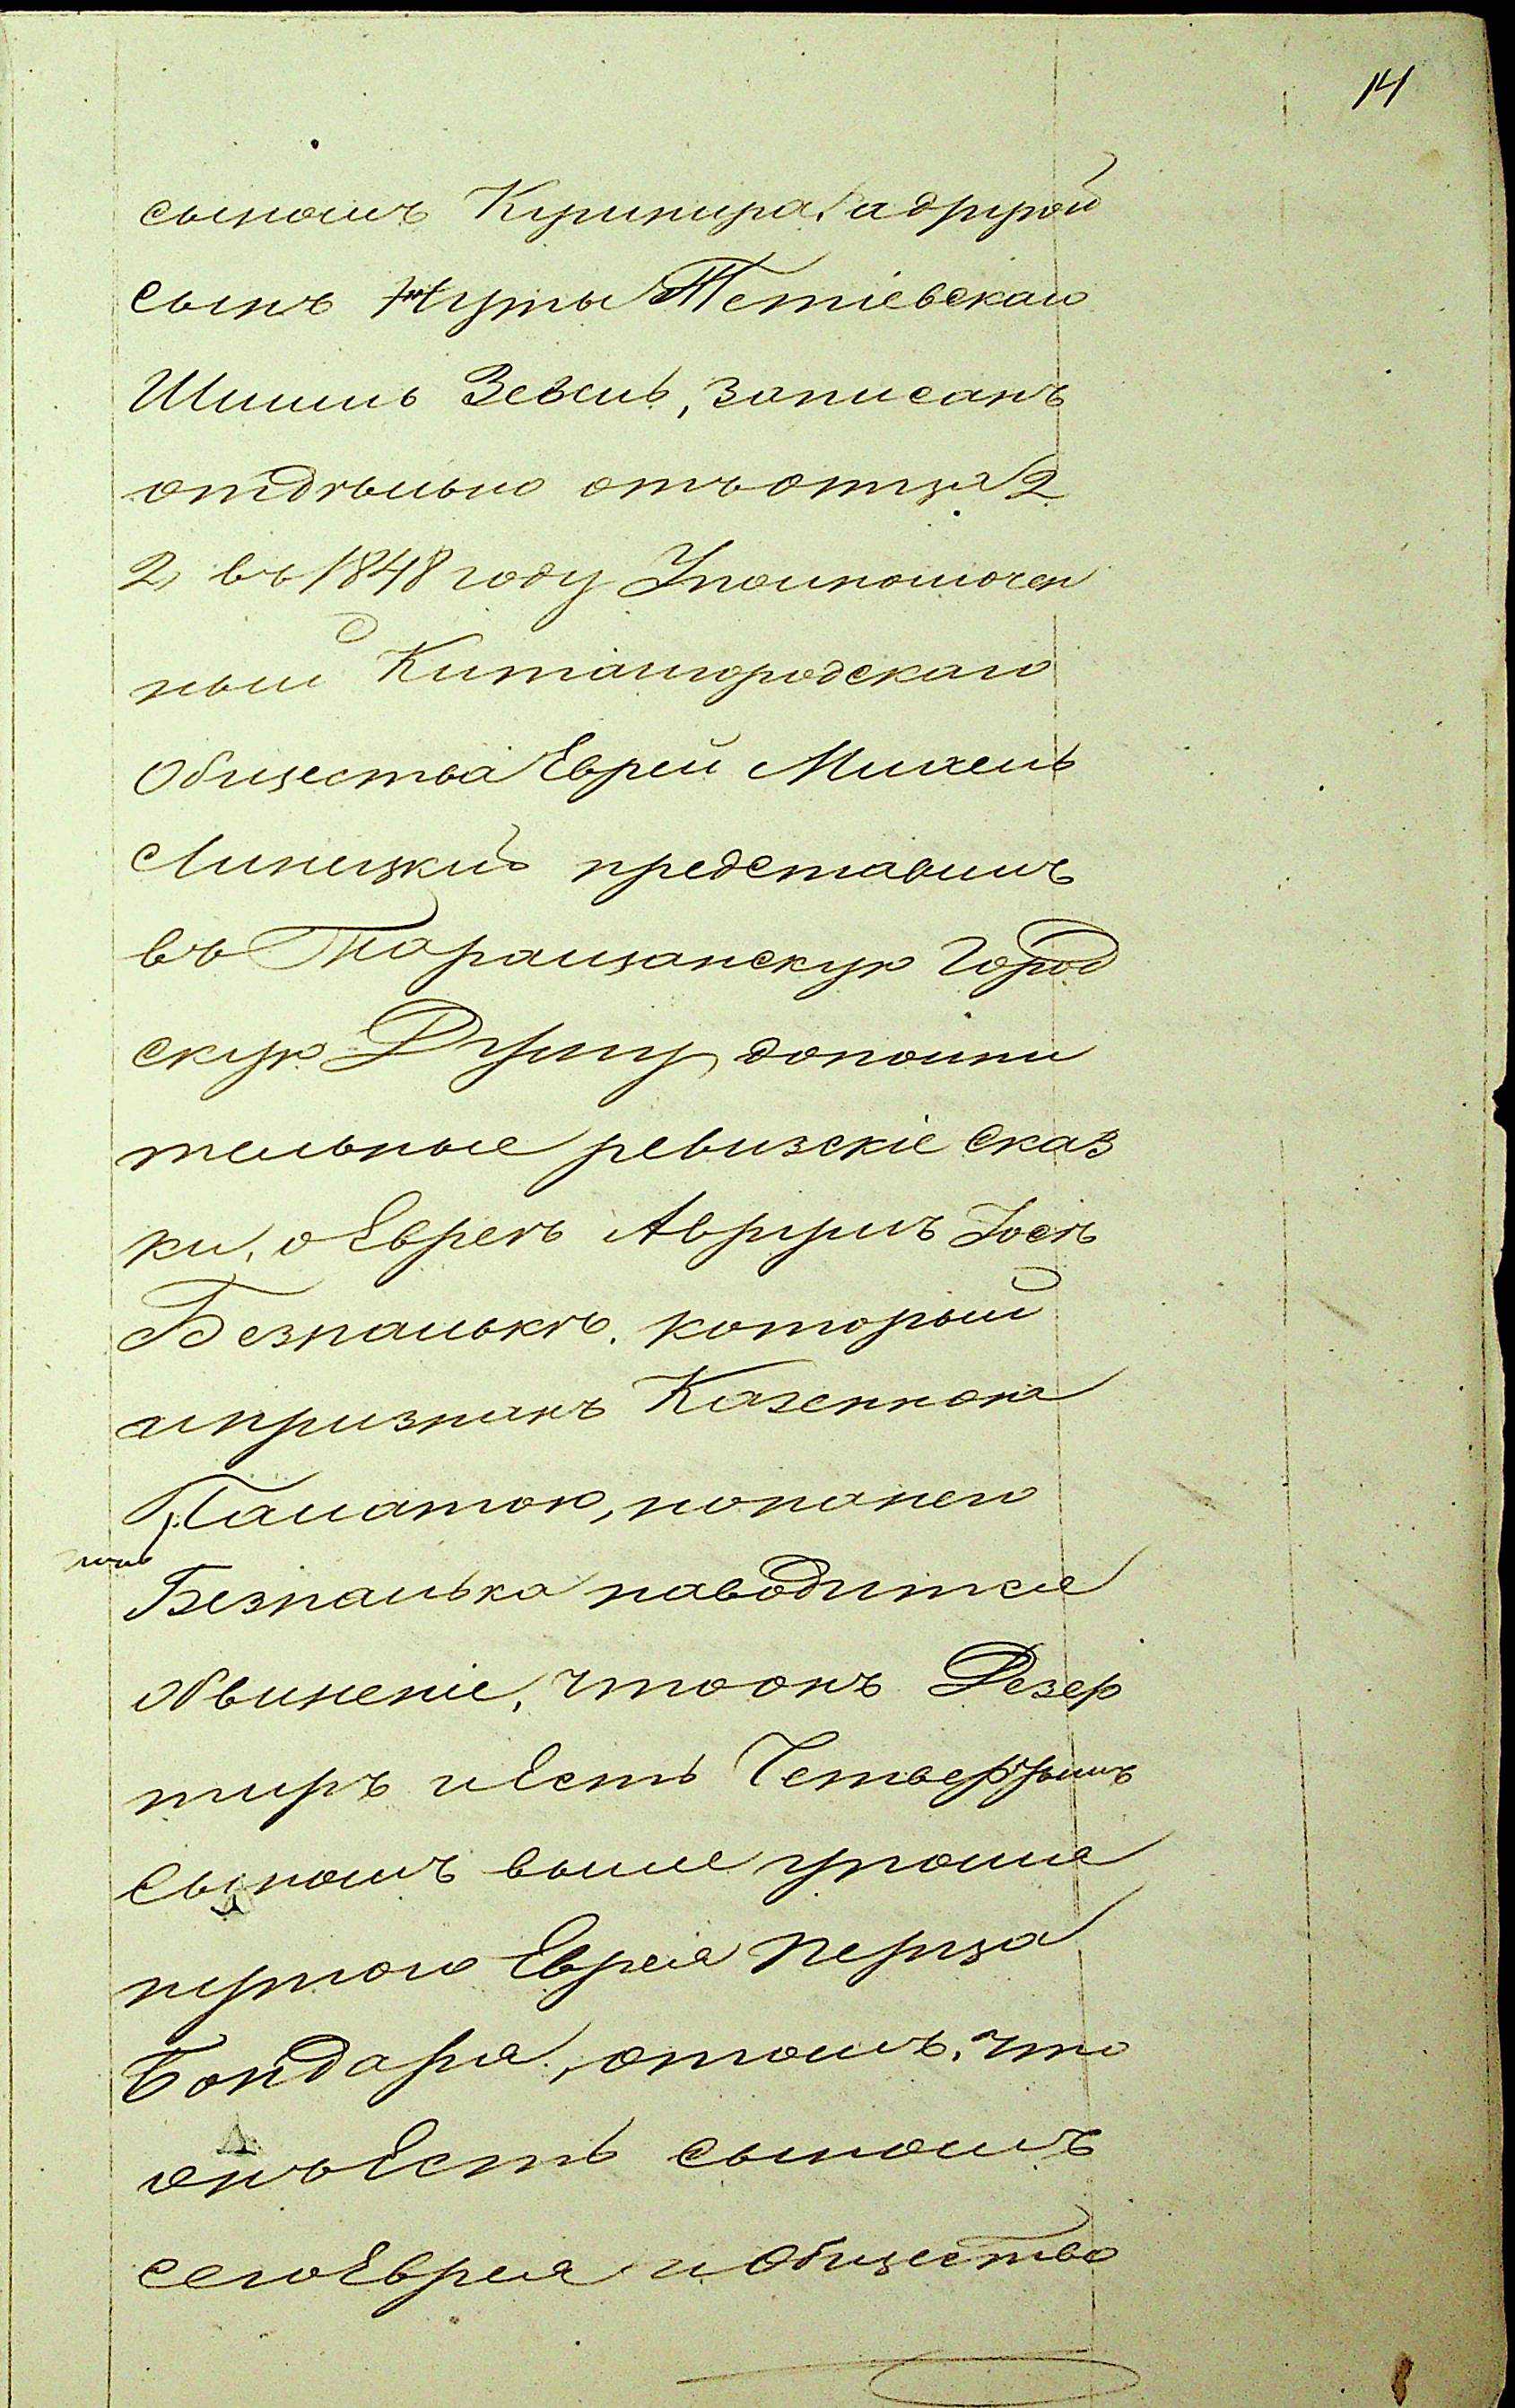 14
сыномъ Купшира, а другой
сынъ Нуты Тетіевскаго
Шмиль Зевель, записанъ
отдѣльно отъ отца 2
2, въ 1848 году Уполномочен
ный Китайгородскаго
Общества Еврей Михель
Липецкій представилъ
въ Таращанскую Город
скую Думу дополни
тельные ревизскіе сказ
ки, о Евреѣ Аврумъ Іосѣ
Безпалькѣ, который
и признанъ Казенною
Палатою, но на него
Безпалька наводится
обвиненіе, что онъ Дезер
тиръ и есть Четвертымъ
сыномъ выше упомя
нутого Еврея Перца
Бондаря, о томъ, что
онъ есть сыномъ
сего Еврея и Общество